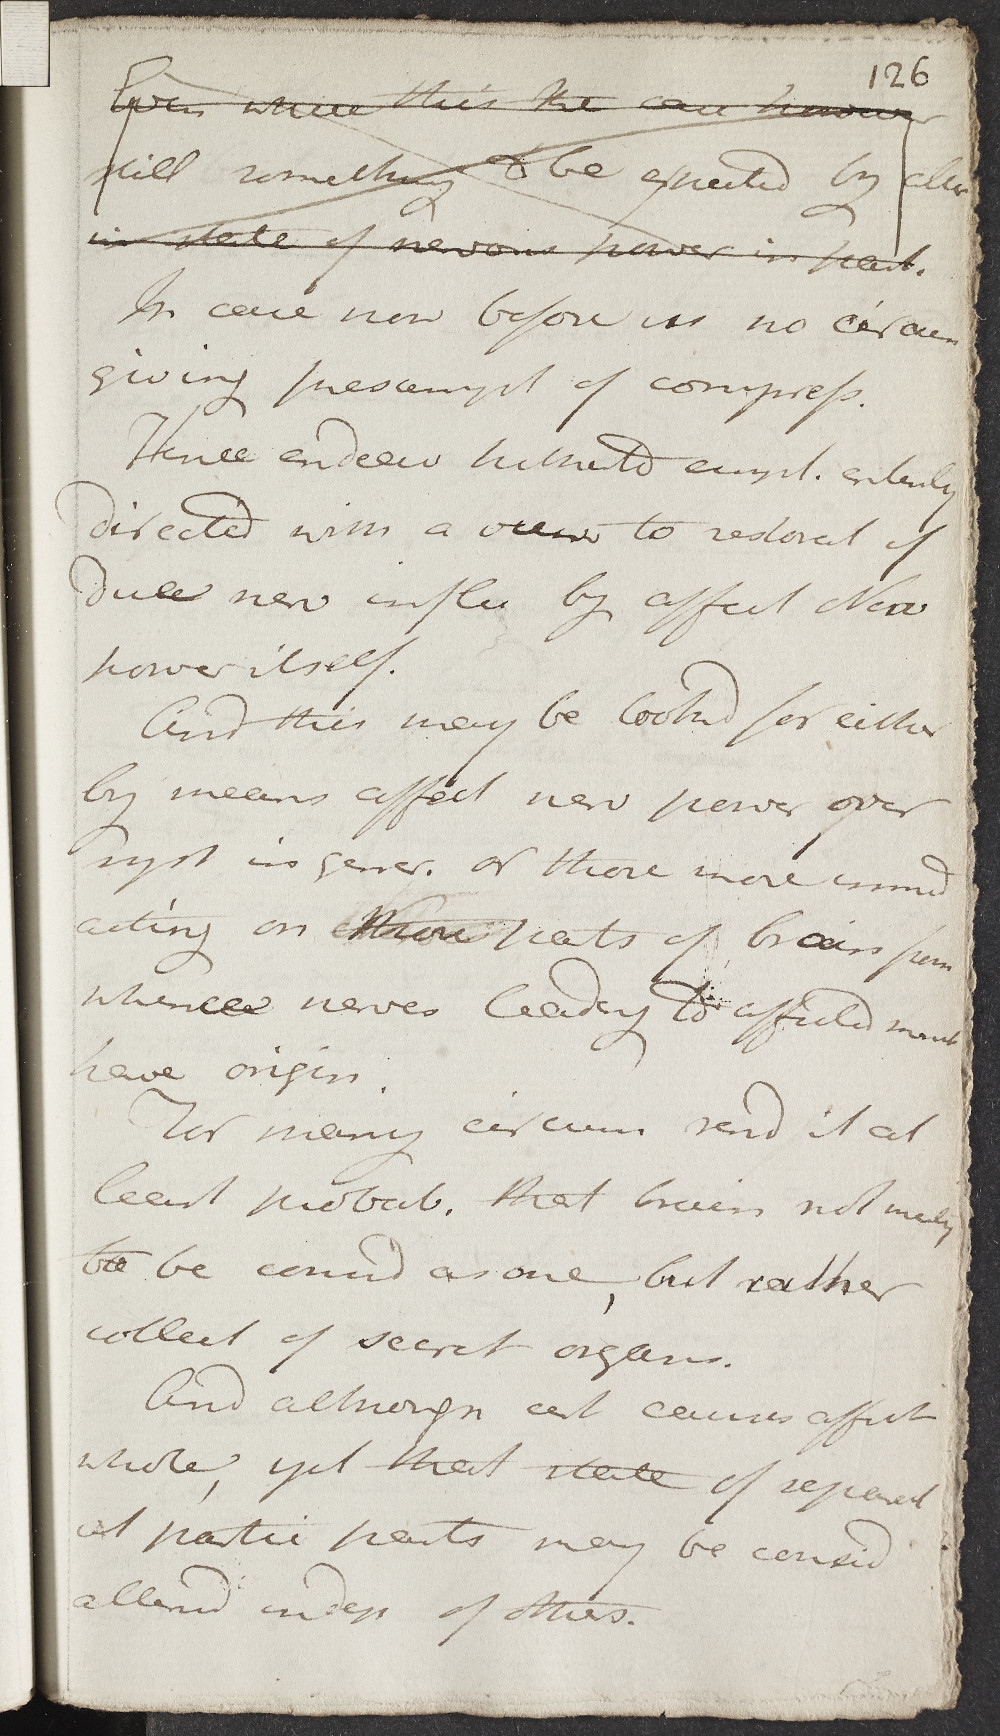 126
Even where this the case however
still something to be expected by alter
in state of nervous power in part.
In case now before us no circum
giving presumpt of compress.
Hence endeav hitherto empl. entirely
directed with a view to restorat of
due nerv influ by affect Nerv
power itself.
And this may be looked for either
by means affect nerv power over
syst in gener. or those more immed
acting on those parts of brain from
whence nerves leading to affected
have origin.
For many circum rend it at
least probab. that brain not merely
to be consid as one, but rather
collect of secret organs.
And although cert causes affect
whole, yet that state of separat
at partic parts may be consid
altered indep of others.